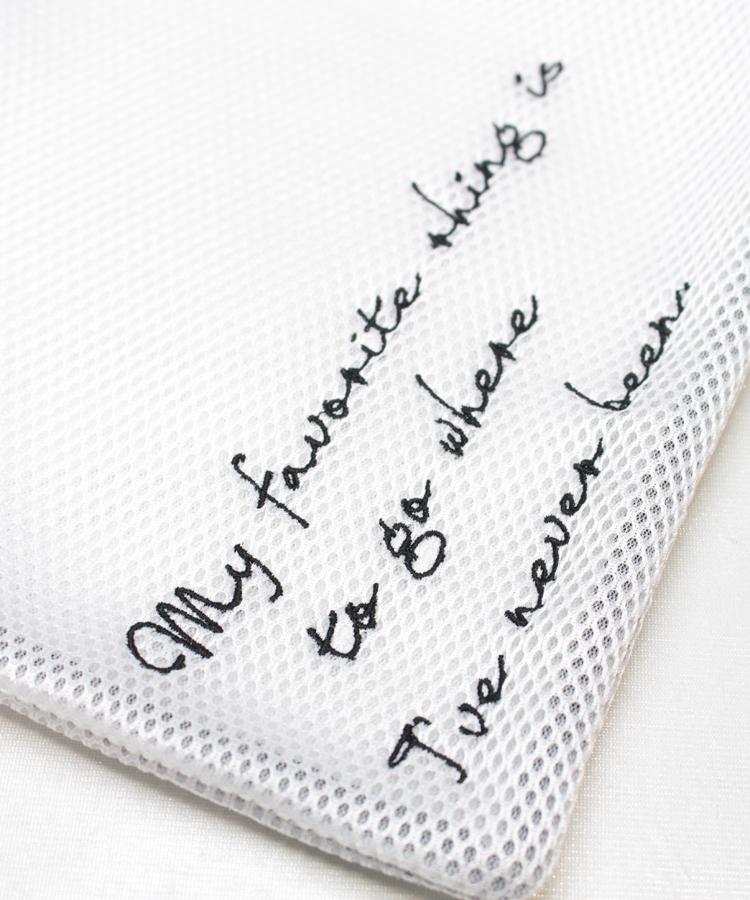 My favorite thing is
to go where
I've never been.